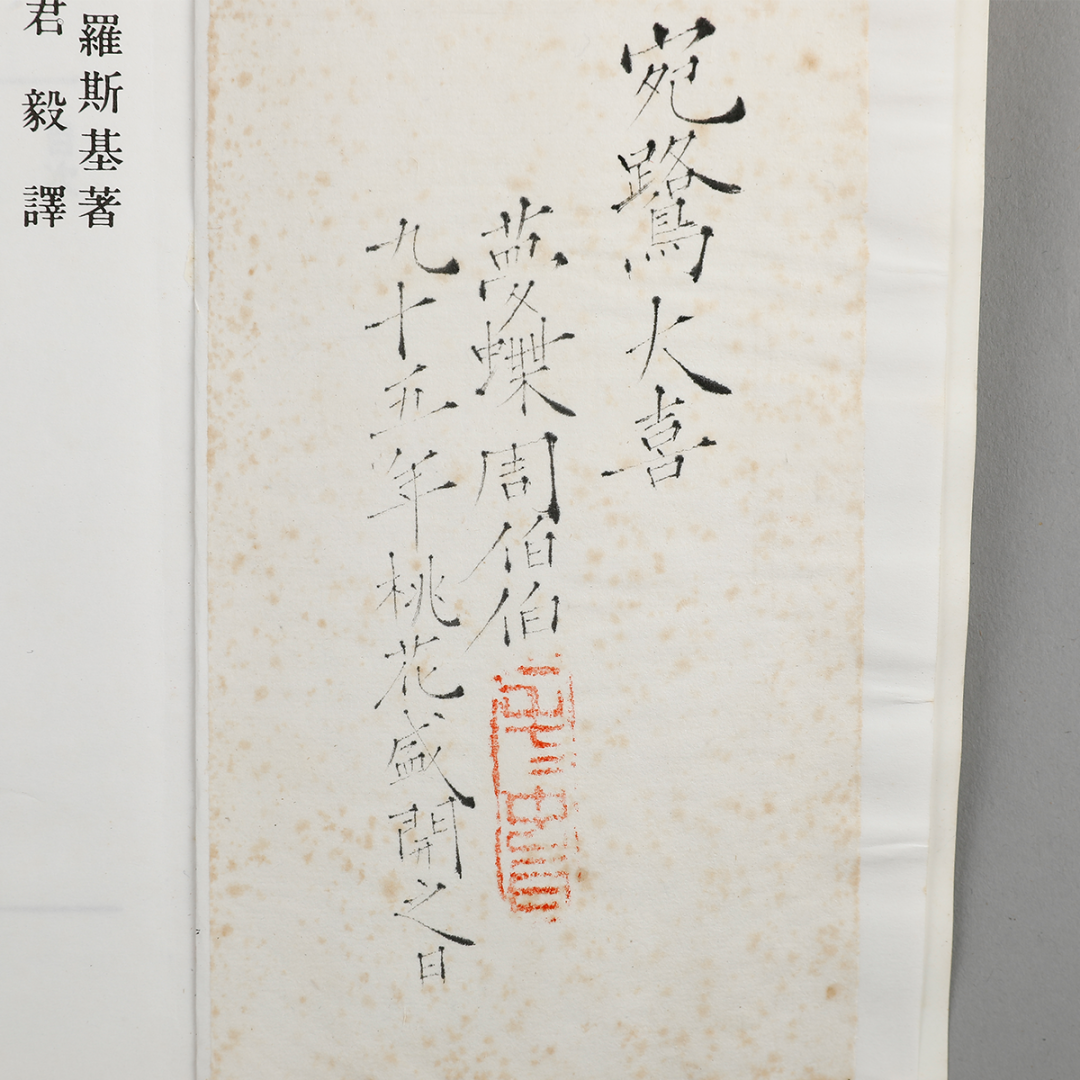 宛鷺大喜
夢蝶周伯伯
九十五年桃花盛開之日
羅斯基著
君毅譯